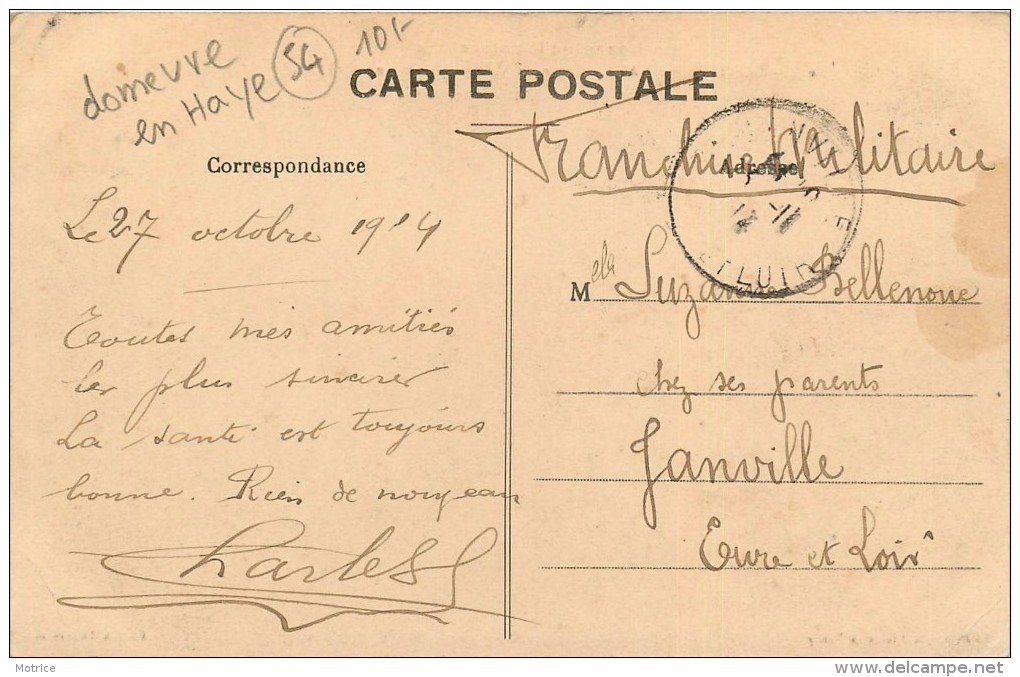 domevre
en Haye
54
10f-
CARTE POSTALE
Franchise Militaire
Correspondance
Adresse
Le 27 octobre 1914
Toutes mes amitiés
les plus sincères
La santé est toujours
bonne. Rien de nouveau
Charles
Melle Suzanne Bellenoue
chez ses parents
Janville
Eure et Loir
Motrice
http://www.delcampe.net